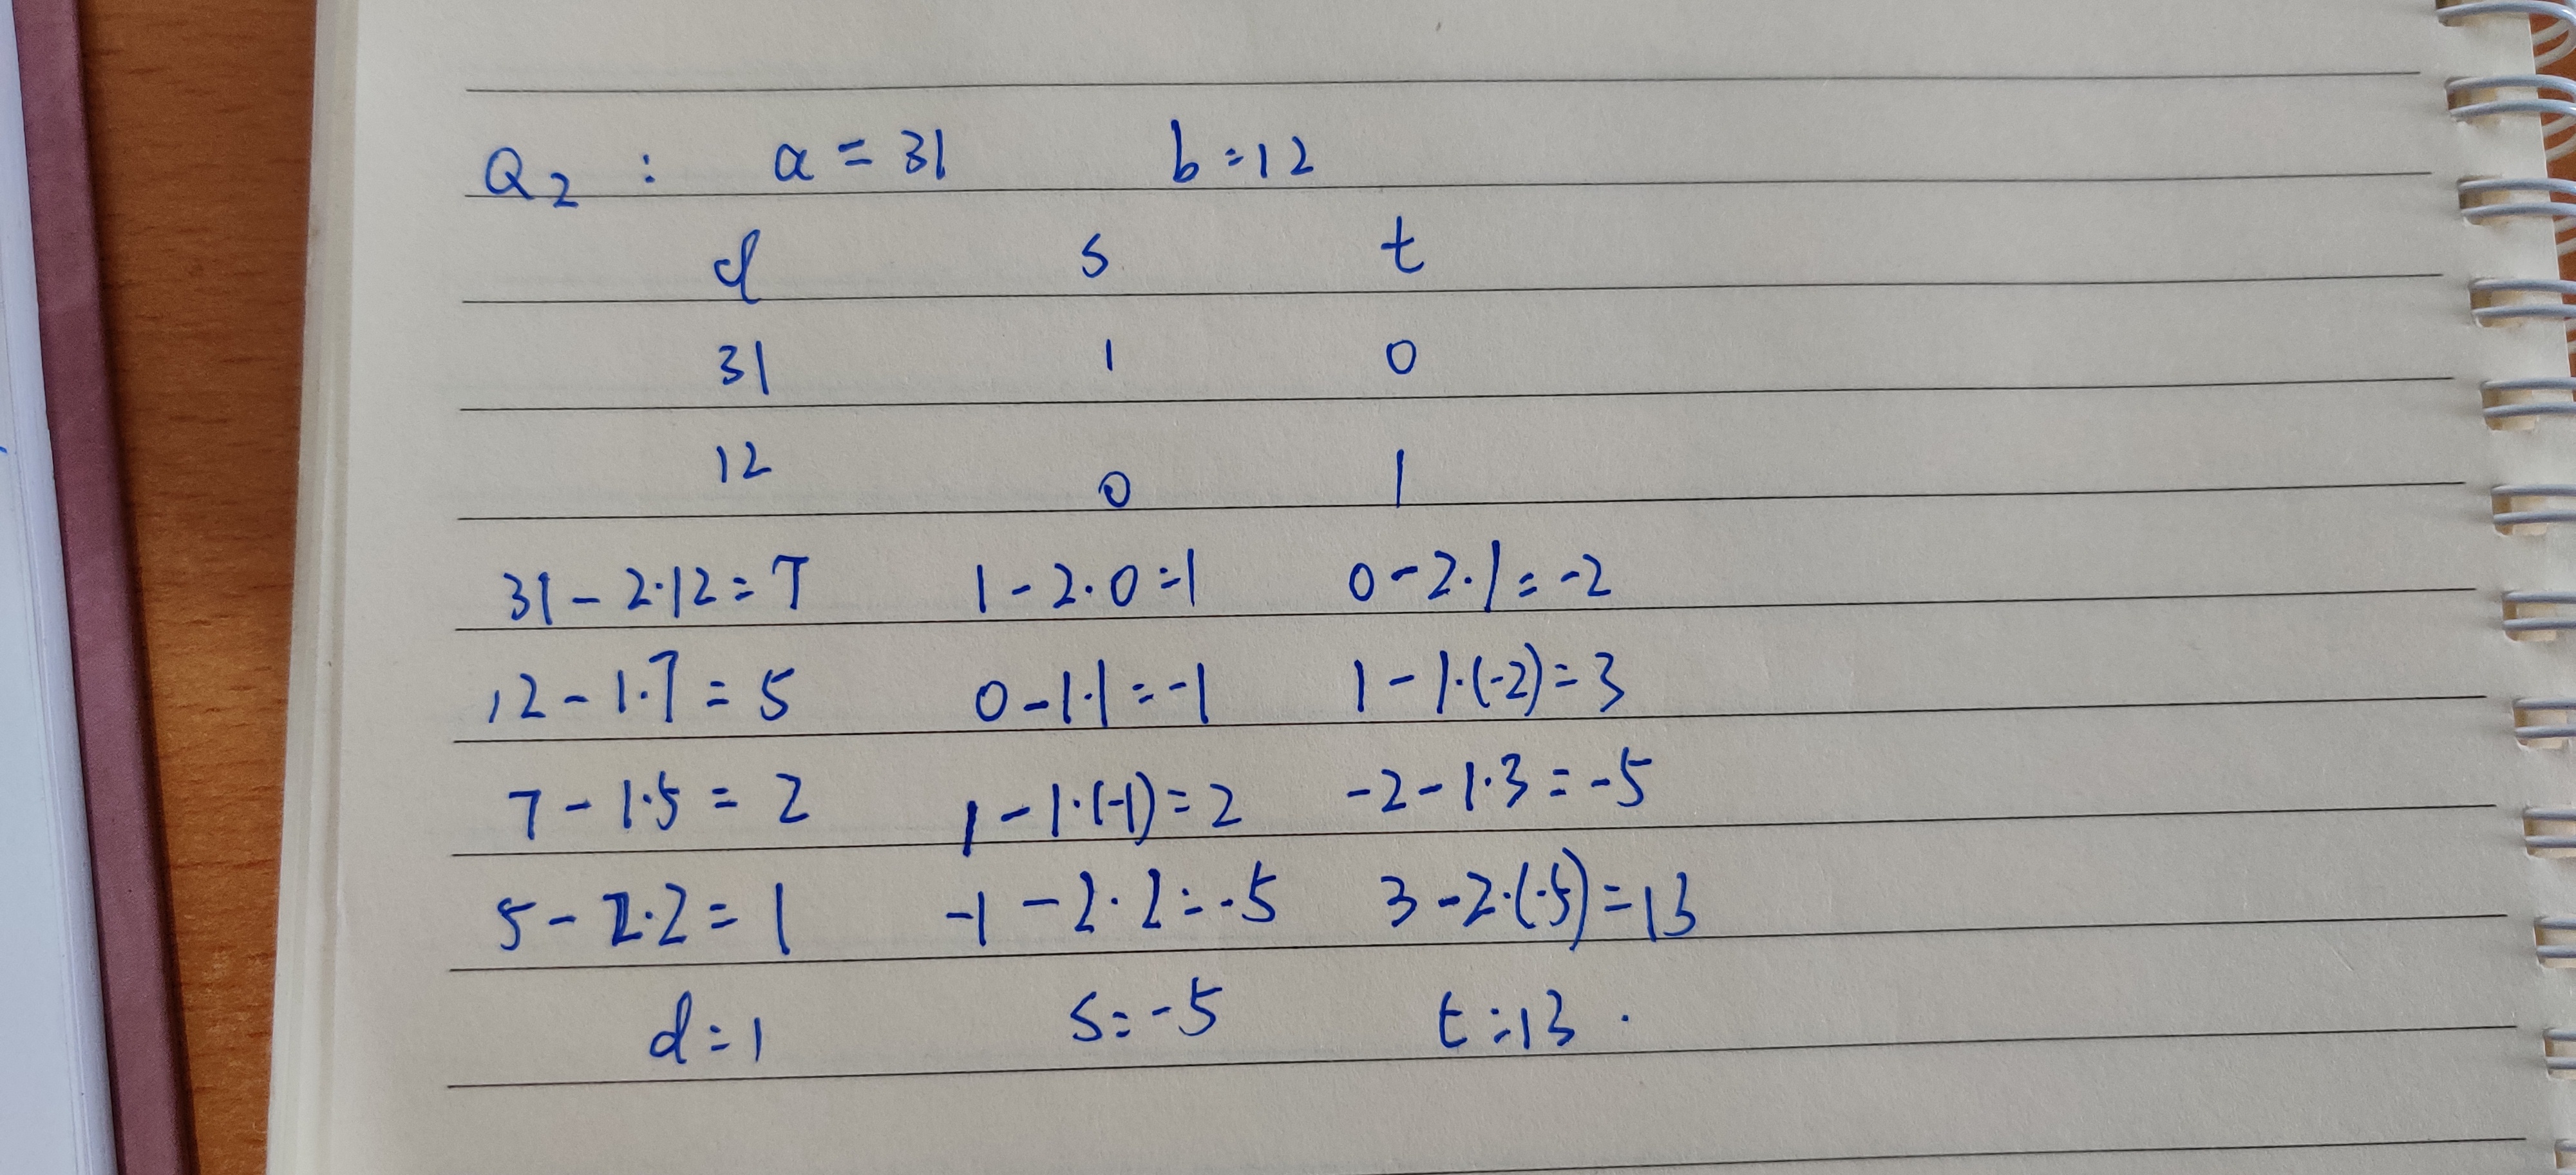 Q2 : a = 31 b = 12
d s t
31 1 0
12 0 1
31 - 2·12 = 7 1 - 2·0 = 1 0 - 2·1 = -2
12 - 1·7 = 5 0 - 1·1 = -1 1 - 1·(-2) = 3
7 - 1·5 = 2 1 - 1·(-1) = 2 -2 - 1·3 = -5
5 - 2·2 = 1 -1 - 2·2 = -5 3 - 2·(-5) = 13
d = 1 s = -5 t = 13 .